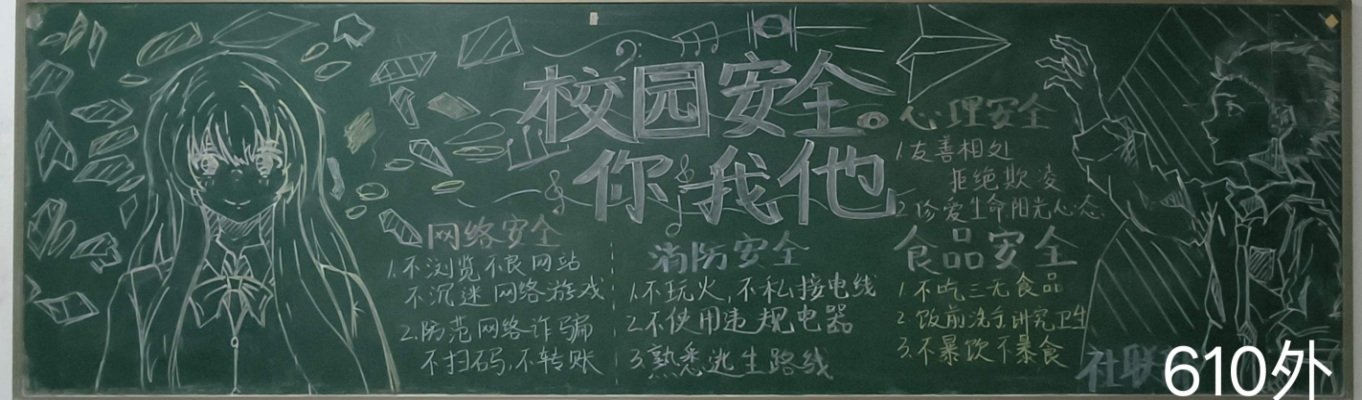 校园安全。
你我他
网络安全
1.不浏览不良网站
不沉迷网络游戏
2.防范网络诈骗
不扫码,不转账
消防安全
1.不玩火,不私接电线
2.不使用违规电器
3.熟悉逃生路线
心理安全
1.友善相处
拒绝欺凌
2.珍爱生命阳光心态
食品安全
1.不吃三无食品
2.饭前洗手讲究卫生
3.不暴饮不暴食
社联
610外